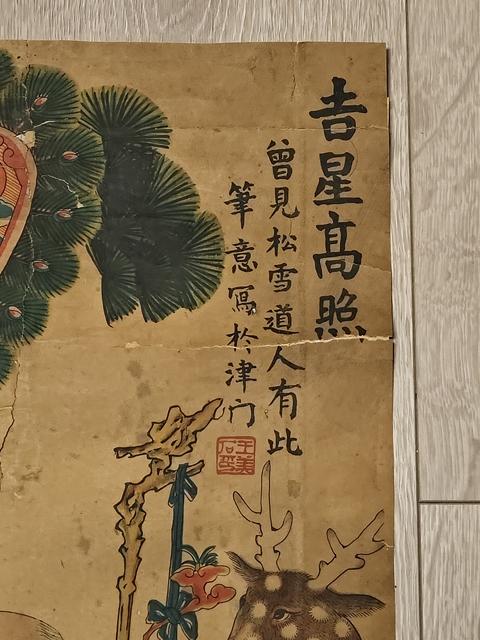 吉星高照
曾見松雪道人有此
筆意寫於津门
王美石印